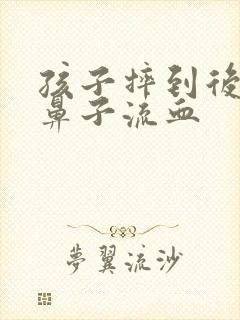 孩子摔到後
鼻子流血
夢翼流沙